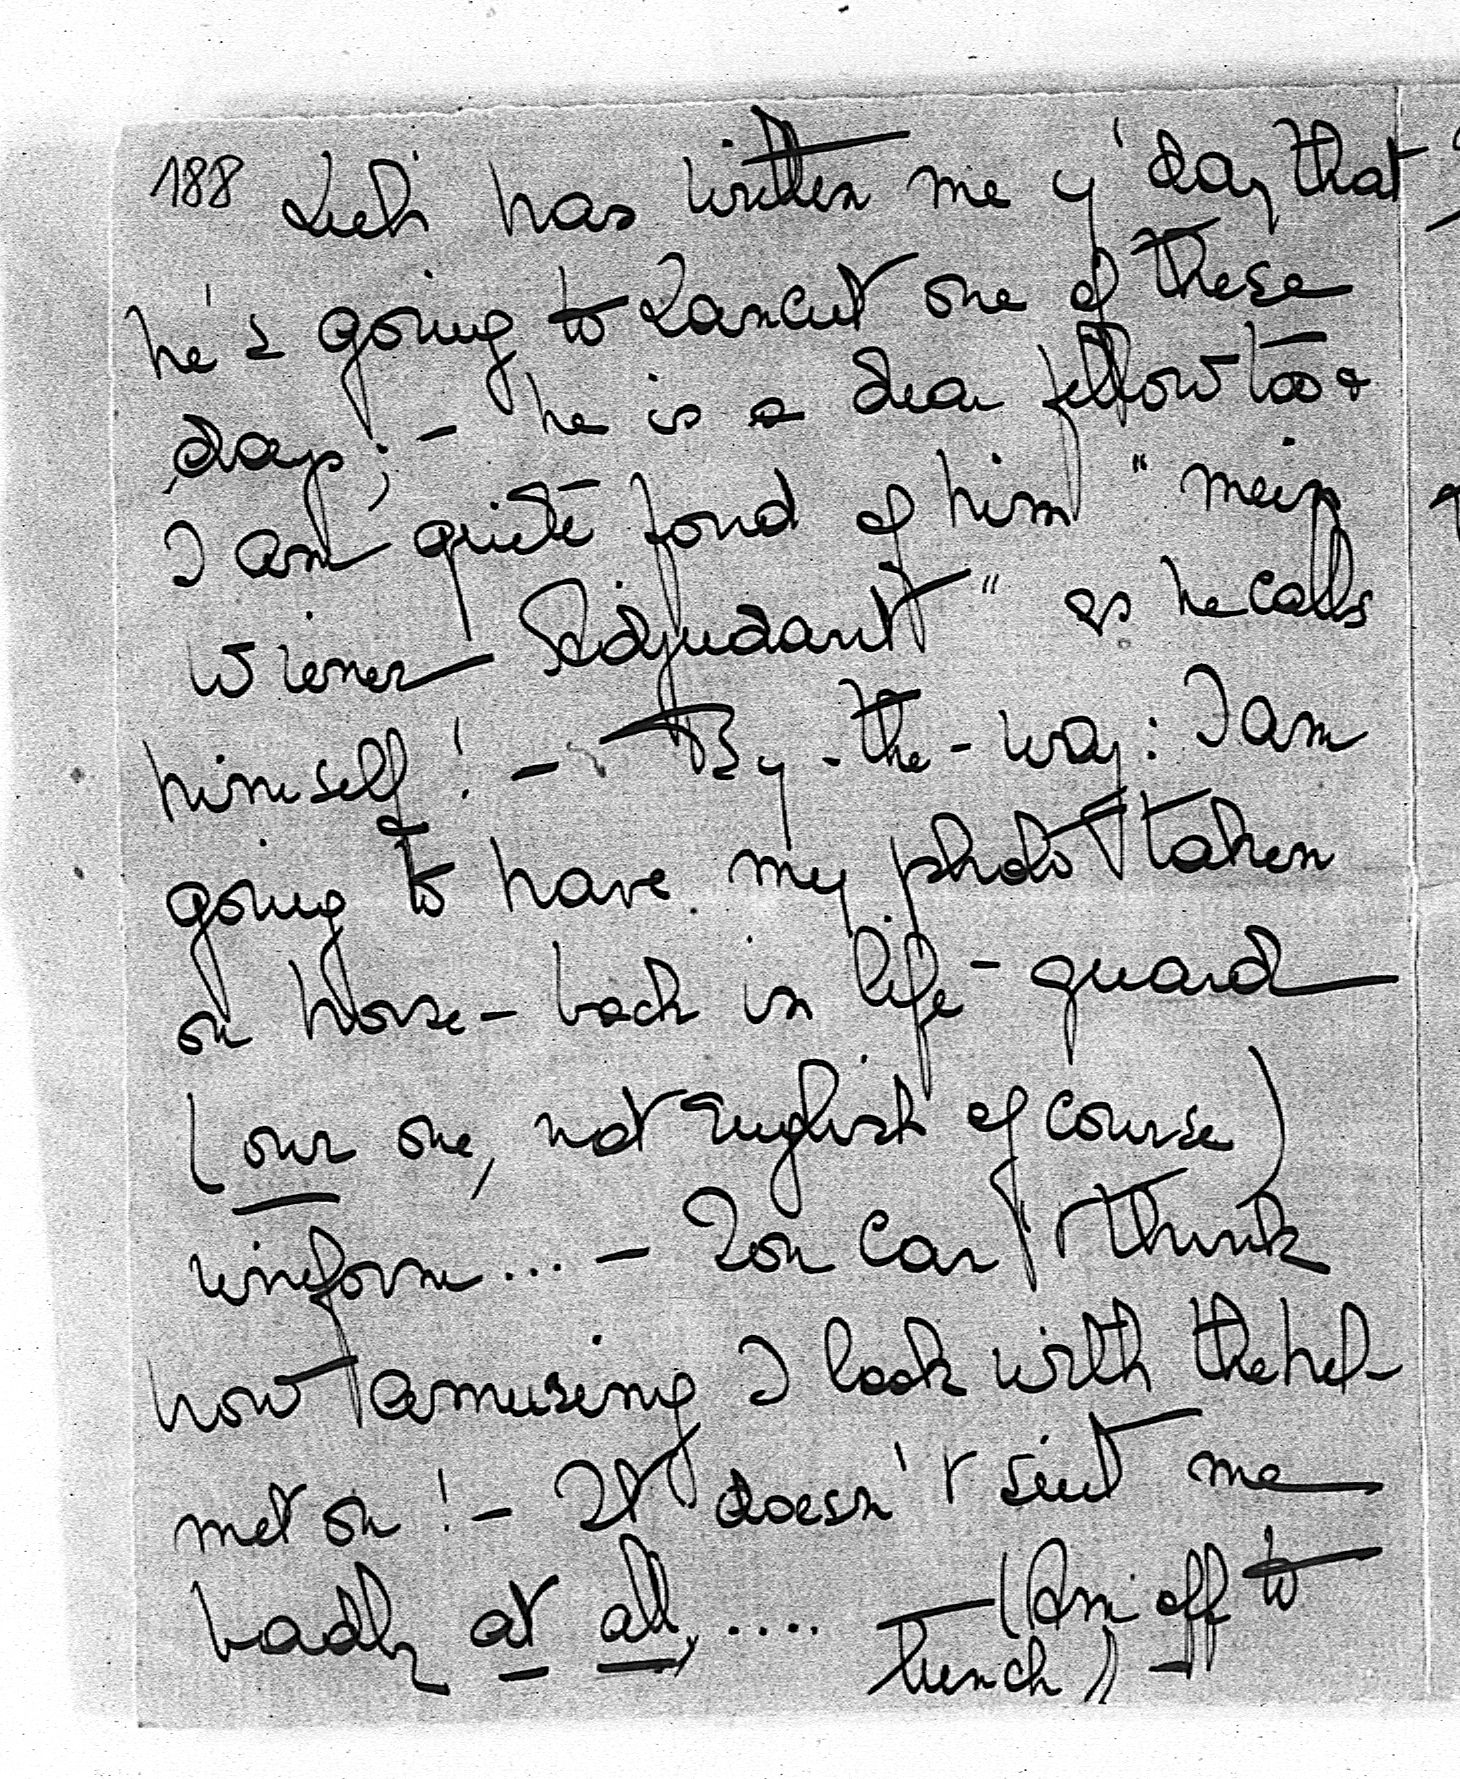 188 has written me y'day that
he's going to Lancut one of these
days; - he is a dear fellow too &
I am quite fond of him "mein
Wiener Adjudant" as he calls
himself! - By-the-way: I am
going to have my photo taken
on horse-back in life-guard
(our one, not English of course)
uniform... - You can't think
how amusing I look with the hel-
met on! - It doesn't suit me
badly at all, .... - (Am off to
lunch) -